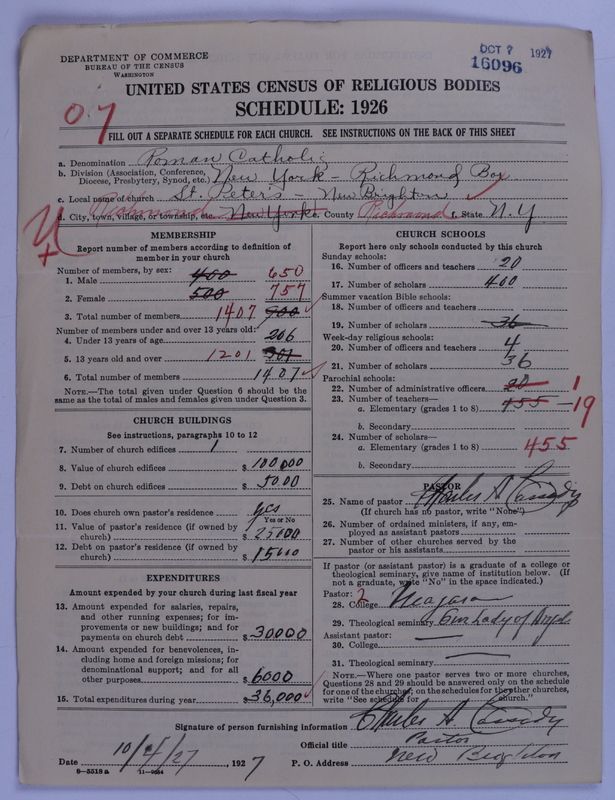 DEPARTMENT OF COMMERCE
BUREAU OF THE CENSUS
WASHINGTON
OCT ? 1927
16096
UNITED STATES CENSUS OF RELIGIOUS BODIES
SCHEDULE: 1926
07
FILL OUT A SEPARATE SCHEDULE FOR EACH CHURCH. SEE INSTRUCTIONS ON THE BACK OF THIS SHEET
a. Denomination Roman Catholic
b. Division (Association, Conference, Diocese, Presbytery, Synod, etc.) New York - Richmond Boro
c. Local name of church St. Peter's - New Brighton
d. City, town, village, or township, etc. Richmond New York e. County Richmond f. State N.Y
MEMBERSHIP
Report number of members according to definition of
member in your church
Number of members, by sex:
1. Male 400 650
2. Female 500 757
3. Total number of members 1407 900
Number of members under and over 13 years old:
4. Under 13 years of age 206
5. 13 years old and over 1201 301
6. Total number of members 1407
NOTE.—The total given under Question 6 should be
same as the total of males and females given under Question 3.
CHURCH BUILDINGS
See instructions, paragraphs 10 to 12
7. Number of church edifices 1
8. Value of church edifices $ 100000
9. Debt on church edifices $ 5000
10. Does church own pastor's residence yes
Yes or No
11. Value of pastor's residence (if owned by
church) $ 25000
12. Debt on pastor's residence (if owned by
church) $ 15000
EXPENDITURES
Amount expended by your church during last fiscal year
13. Amount expended for salaries, repairs,
and other running expenses; for im-
provements or new buildings; and for
payments on church debt $ 30000
14. Amount expended for benevolences, in-
cluding home and foreign missions; for
denominational support; and for all
other purposes $ 6000
15. Total expenditures during year $ 36,000
CHURCH SCHOOLS
Report here only schools conducted by this church
Sunday schools:
16. Number of officers and teachers 20
17. Number of scholars 400
Summer vacation Bible schools:
18. Number of officers and teachers
19. Number of scholars 36
Week-day religious schools:
20. Number of officers and teachers 4
21. Number of scholars 36
Parochial schools:
22. Number of administrative officers 20 1
23. Number of teachers—
a. Elementary (grades 1 to 8) 455 - 19
b. Secondary
24. Number of scholars—
a. Elementary (grades 1 to 8) 455
b. Secondary
PASTOR
25. Name of pastor Charles A Cassidy
(If church has no pastor, write "None")
26. Number of ordained ministers, if any, em-
ployed as assistant pastors
27. Number of other churches served by the
pastor or his assistants
If pastor (or assistant pastor) is a graduate of a college or
theological seminary, give name of institution below. (If
not a graduate, write "No" in the space indicated.)
Pastor: 2
28. College Niagara
29. Theological seminary Our Lady of Angels
Assistant pastor:
30. College
31. Theological seminary
NOTE.—Where one pastor serves two or more churches,
Questions 28 and 29 should be answered only on the schedule
for one of the churches; on the schedules for the other churches,
write "See schedule for church."
Signature of person furnishing information Charles A Cassidy
Official title Pastor
Date 10/4/27, 1927 P. O. Address New Brighton
8—5518a 11—9664